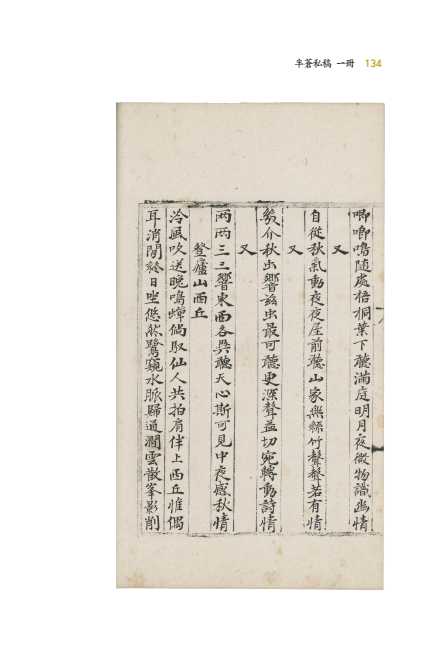 半蒼私稿 一冊 134
唧唧鳴隨處梧桐葉下聽滿庭明月夜微物識幽情
又
自從秋氣動夜夜屋前聽山家無綠竹聲聲若有情
又
幾介秋虫響玆虫最可聽更深聲益切宛轉動詩情
又
兩兩三三響東西各異聽天心斯可見中夜感秋情
登廬山西丘
冷風吹送晚鳴蟬偶馭仙人共拍肩伴上西丘惟偶
耳消閒終日坐悠然鷺窺水脈歸通澗雲散峯影削